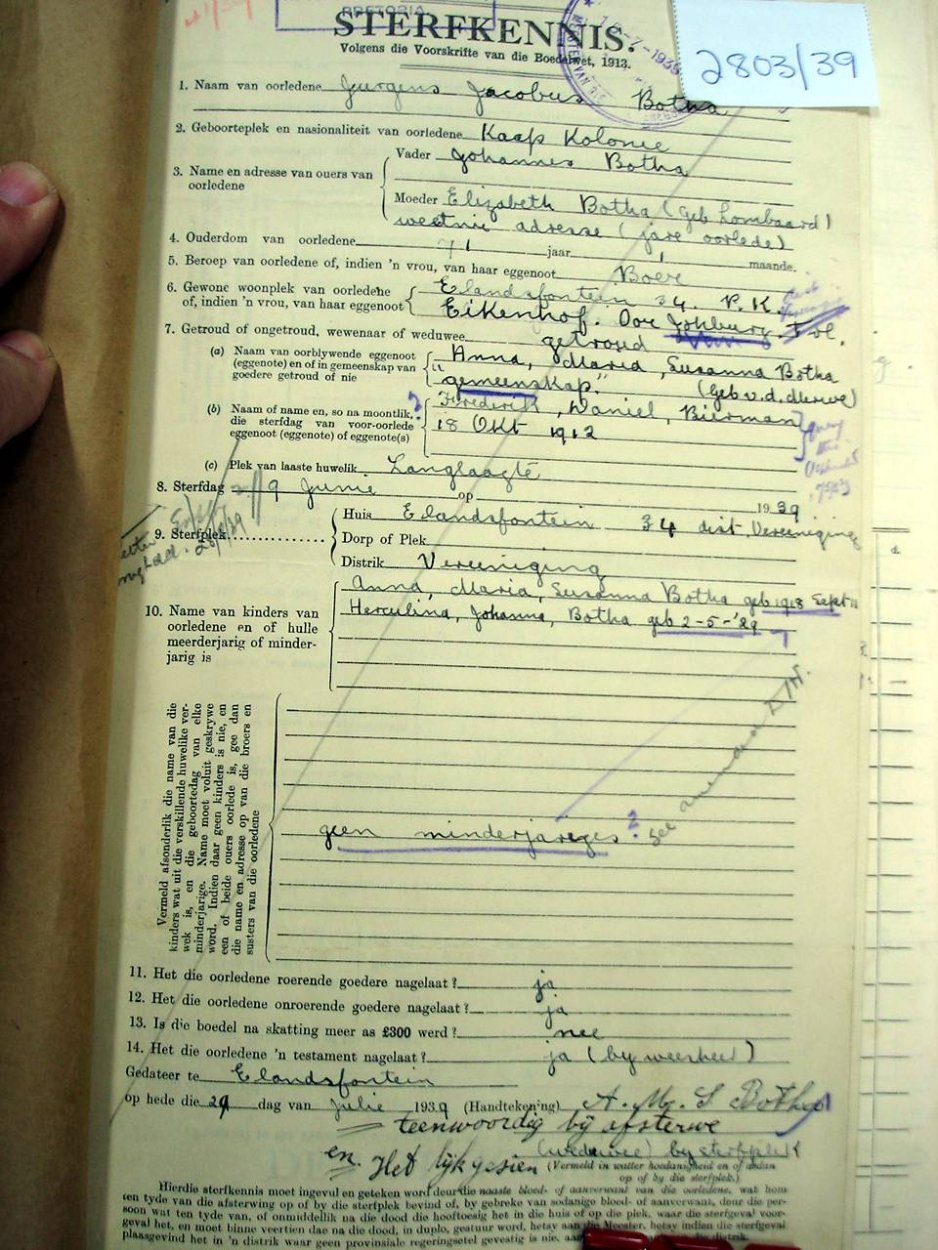 PRETORIA
STERFKENNIS.
Volgens die Voorskrifte van die Boedelwet, 1913.
2803/39
1. Naam van oorledene Jurgens Jacobus Botha
2. Geboorteplek en nasionaliteit van oorledene Kaap Kolonie
3. Name en adresse van ouers van oorledene
Vader Johannes Botha
Moeder Elizabeth Botha (geb Lombaard)
weetnie adresse (jare oorlede)
4. Ouderdom van oorledene 71 jaar maande.
5. Beroep van oorledene of, indien 'n vrou, van haar eggenoot Boer
6. Gewone woonplek van oorledene of, indien 'n vrou, van haar eggenoot
Elandsfontein 34. P.K.
Eikenhof. Oor Johburg. Tvl.
7. Getroud of ongetroud, wewenaar of weduwee getroud
(a) Naam van oorblywende eggenoot (eggenote) en of in gemeenskap van goedere getroud of nie
Anna, Maria, Susanna Botha
"gemeenskap" (geb v.d. Merwe)
(b) Naam of name en, so na moontlik, die sterfdag van voor-oorlede eggenoot (eggenote) of eggenote(s)
? Frederik, Daniel, Bierman
18 Okt 1912
(c) Plek van laaste huwelik Langlaagte
8. Sterfdag 9 Junie op 1939
9. Sterfplek
Huis Elandsfontein 34 dist. Vereeniging
Dorp of Plek
Distrik Vereeniging
10. Name van kinders van oorledene en of hulle meerderjarig of minderjarig is
Anna, Maria, Susanna Botha geb 1918 Sept 11
Herculina, Johanna, Botha geb 2-5-'29
Vermeld afsonderlik die name van die
kinders wat uit die verskillende huwelike ver-
wek is, en die geboortedag van elke
minderjarige. Name moet voluit geskrywe
word. Indien daar geen kinders is nie, en
een of beide ouers oorlede is, gee dan
die name en adresse op van die broers en
susters van die oorledene
geen minderjareges ? See
11. Het die oorledene roerende goedere nagelaat? ja
12. Het die oorledene onroerende goedere nagelaat? ja
13. Is die boedel na skatting meer as £300 werd? nee
14. Het die oorledene 'n testament nagelaat? ja (by weesheer)
Gedateer te Elandsfontein
op hede die 29 dag van Julie 1939 (Handtekening) A. M. S Botha
teenwoordig bij afsterwe
(weduwee) by sterfplek
en Het lijk gesien (Vermeld in watter hoedanigheid en of aldan
op of by die sterfplek.)
Hierdie sterfkennis moet ingevul en geteken word deur die naaste bloed- of aanverwant van die oorledene, wat hom
ten tyde van die afsterwing op of by die sterfplek bevind of, by gebreke van sodanige bloed- of aanverwant, deur die per-
soon wat ten tyde van, of onmiddellik na die dood die hooftoesig het in die huis of op die plek, waar die sterfgeval voor-
geval het, en moet binne veertien dae na die dood, in duplo, gestuur word, hetsy aan die Meester, hetsy indien die sterfgeval
plaasgevind het in 'n distrik waar geen provinsiale regeringsetel gevestig is nie, aan die distrik.